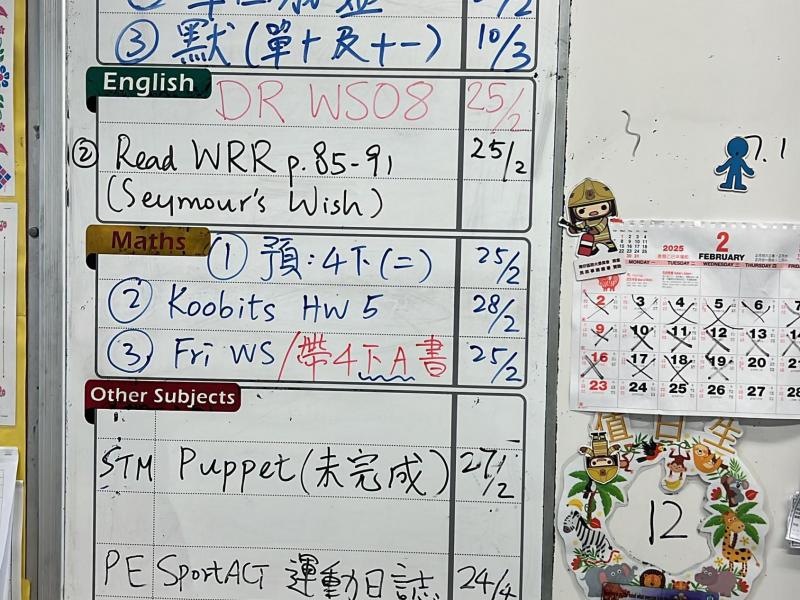 ③ 默(單十及十一) 10/3
English
DR WS08 25/2
② Read WRR p.85-91 25/2
(Seymour's Wish)
Maths
① 預:4下(二) 25/2
② Koobits HW 5 28/2
③ Fri WS/帶4下A書 25/2
Other Subjects
STM Puppet(未完成) 27/2
PE SportACT 運動日誌 24/4
7.1
2025
2
FEBRUARY
MONDAY TUESDAY WEDNESDAY THURSDAY
2 3 4 5 6 7
9 10 11 12 13 14
16 17 18 19 20 21
23 24 25 26 27 28
值日生
12